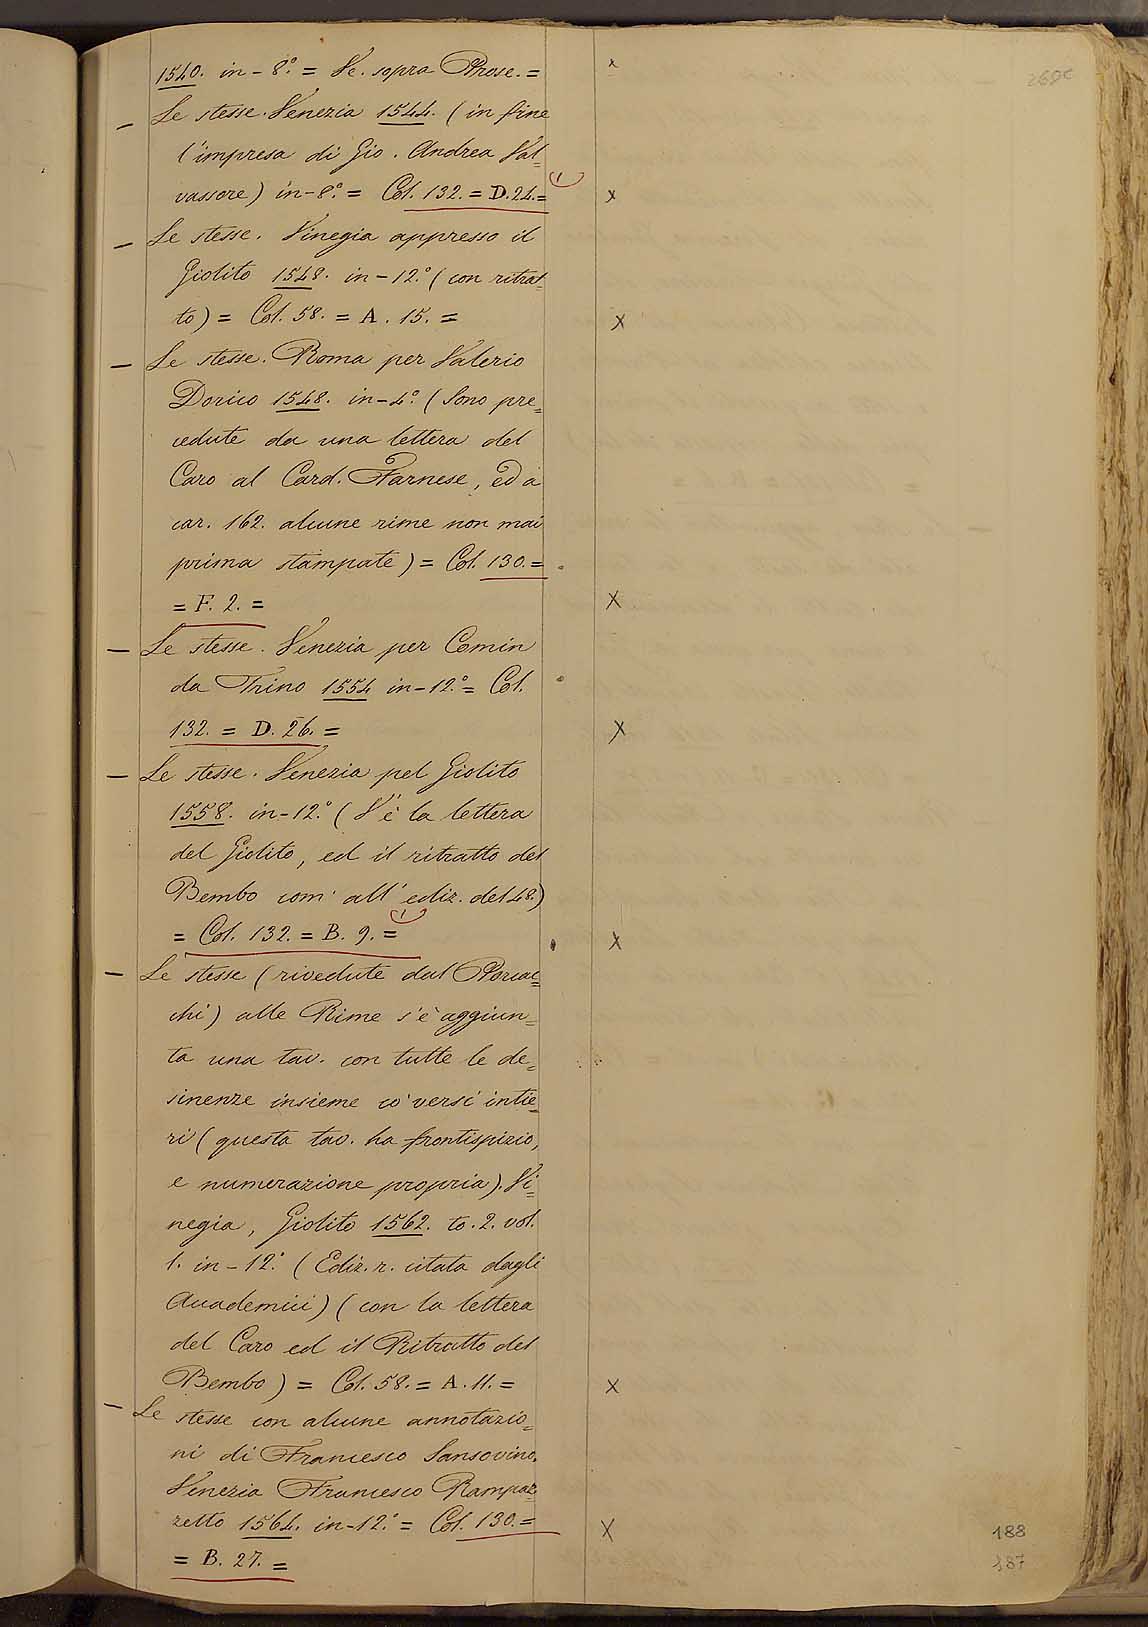 1540. in-8.° = Ve. sopra Prose. =
— Le stesse. Venezia 1544. (in fine
l'impresa di Gio. Andrea Val=
vassore) in-8.° = Col. 132. = D. 24. =
— Le stesse. Vinegia appresso il
Giolito 1548. in-12.° (con ritrat=
to) = Col. 58. = A. 15. =
— Le stesse. Roma per Valerio
Dorico 1548. in-4.° (Sono pre=
cedute da una lettera del
Caro al Card. Farnese, ed a
car. 162. alcune rime non mai
prima stampate) = Col. 130. =
= F. 2. =
— Le stesse. Venezia per Comin
da Trino 1554 in-12.° = Col.
132. = D. 26. =
— Le stesse. Venezia pel Giolito
1558. in-12.° (V'è la lettera
del Giolito, ed il ritratto del
Bembo com' all' ediz. del 48.)
= Col. 132. = B. 9. =
— Le stesse (rivedute dal Porcac=
chi) alle Rime s'è aggiun=
ta una tav. con tutte le de=
sinenze insieme co' versi intie=
ri (questa tav. ha frontispizio,
e numerazione propria). Vi=
negia, Giolito 1562. to. 2. vol.
1. in-12.° (Ediz. r. citata dagli
Accademici) (con la lettera
del Caro ed il Ritratto del
Bembo) = Col. 58. = A. 11. =
— Le stesse con alcune annotazio=
ni di Francesco Sansovino.
Venezia Francesco Rampaz=
zetto 1564. in-12.° = Col. 130. =
= B. 27. =
188
187